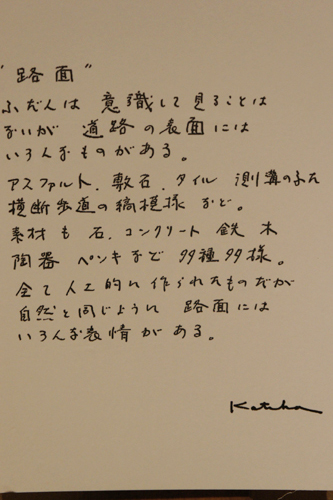 "路面"
ふだんは 意識して見ることは
ないが 道路の表面には
いろんなものがある。
アスファルト、敷石、タイル 測溝のふた
横断歩道の縞模様 など。
素材も 石、コンクリート 鉄 木
陶器 ペンキなど 多種多様。
全て人工的に作られたものだが
自然と同じように 路面には
いろんな表情がある。